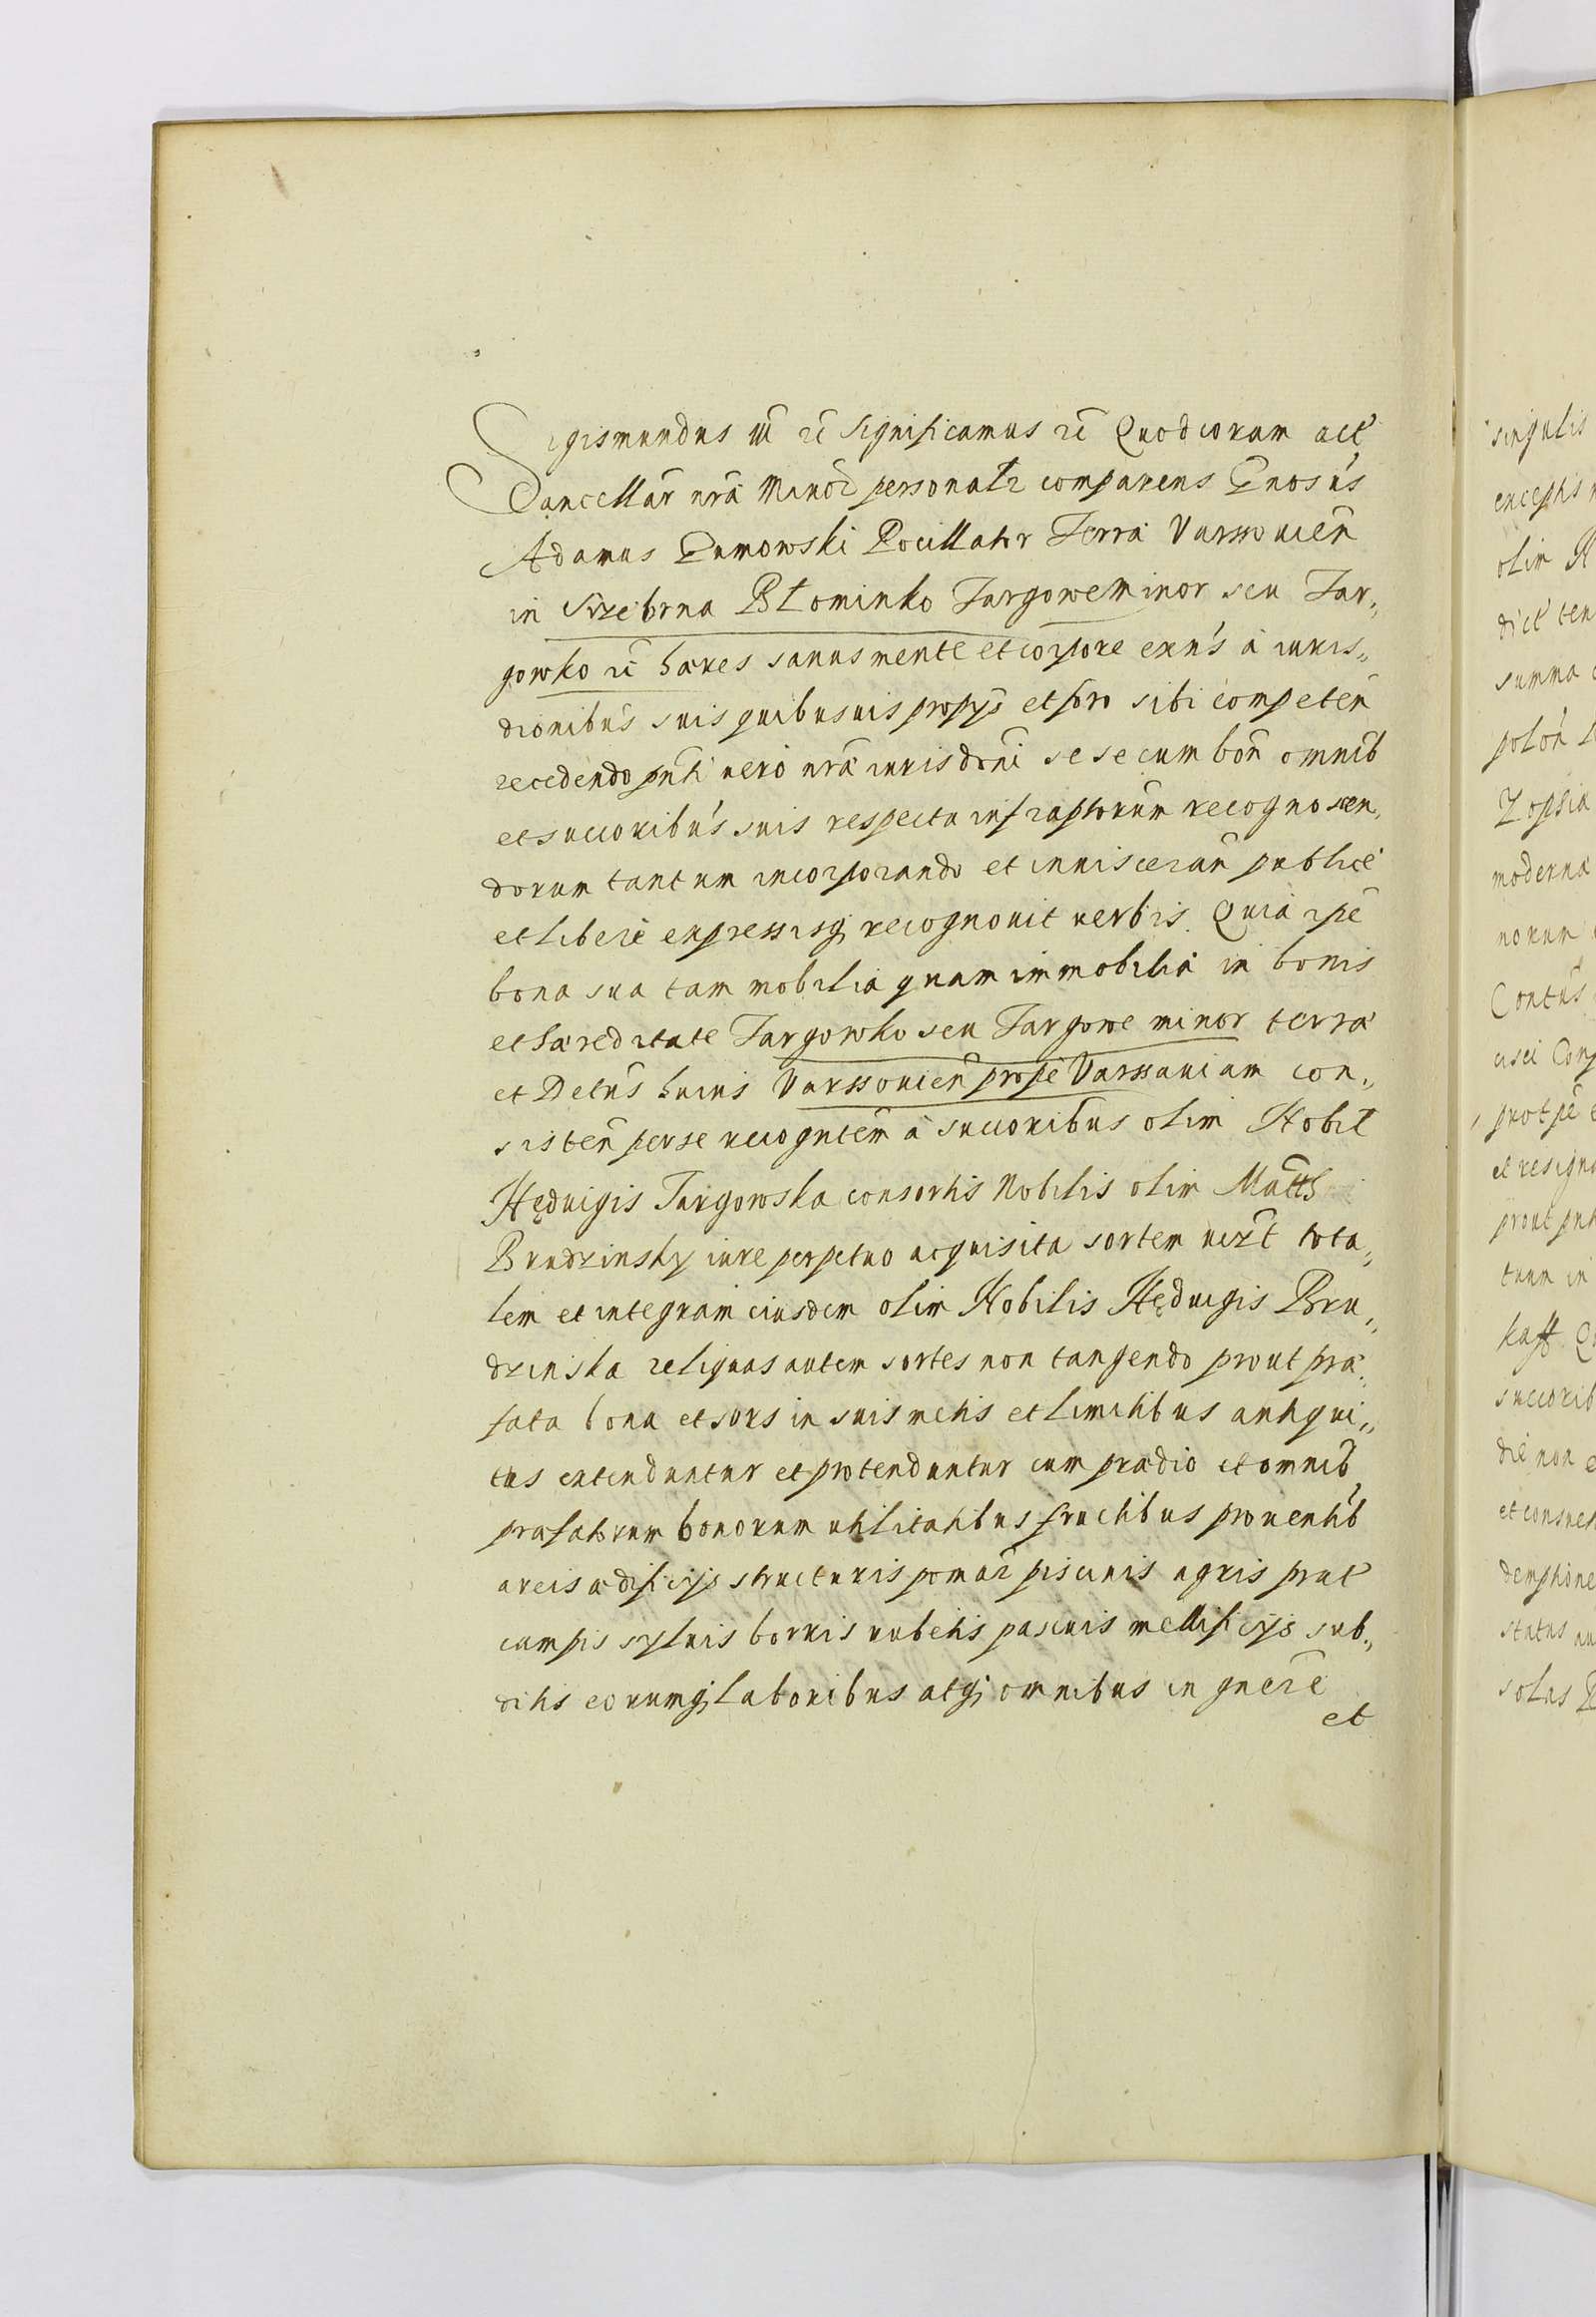 Sigismundus III etc Significamus etc Quod coram act
Cancellar nrã Minor personalr comparens Gnosus
Adamus Gumowski Pocillator Terræ Varssouien
in Srzebrna Błominko Targowe minor seu Tar„
gowko etc hæres sanus mente et corpore exñs à iuris„
dionibus suis quibusuis propijs et foro sibi competen
recedendo pnti uero nræ iurisdoni se se cum bon omnib
et succoribus suis respectu infraptorum recognoscen„
dorum tantum incorporando et inuisceran publicè
et liberè expressisq; recognouit uerbis. Quia ipe
bona sua tam mobilia quam immobilia in bonis
et hæreditate Targowko seu Targowe minor terræ
et Dctus huius Varssouien prope Varssauiam con„
sisten per se recognten à succoribus olim Nobil
Hęduigis Targowska consortis Nobilis olim Matth
Brudzinsky iure perpetuo acquisita sortem uerzt tota„
lem et integram eiusdem olim Nobilis Hęduigis Bru„
dzinska reliquas autem sortes non tangendo prout præ„
fata bona et sors in suis metis et limitibus antiqui„
tus extenduntur et protenduntur cum prædio et omnib
præfatorum bonorum utilitatibus fructibus prouentib
areis ædificijs structuris pomar piscinis agris prat
campis syluis borris rubetis pascuis mellificijs sub„
ditis eorumq; laboribus atq; omnibus in gnere
et
singulis
olim
summa
polon
moderna
norum
Contus
et resigna
tuum in
succorib
die non
status
solus